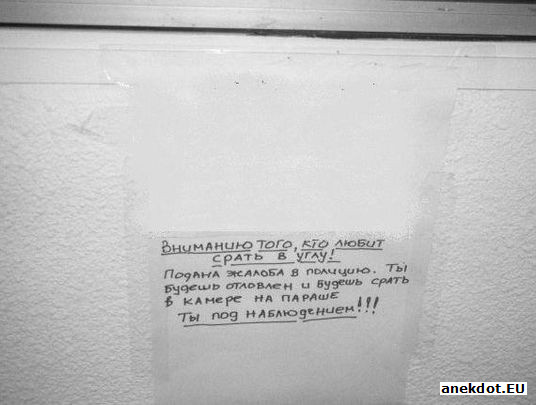 Вниманию того, кто любит
срать в углу!
Подана жалоба в полицию. Ты
будешь отловлен и будешь срать
в камере на параше
Ты под наблюдением!!!
anekdot.EU